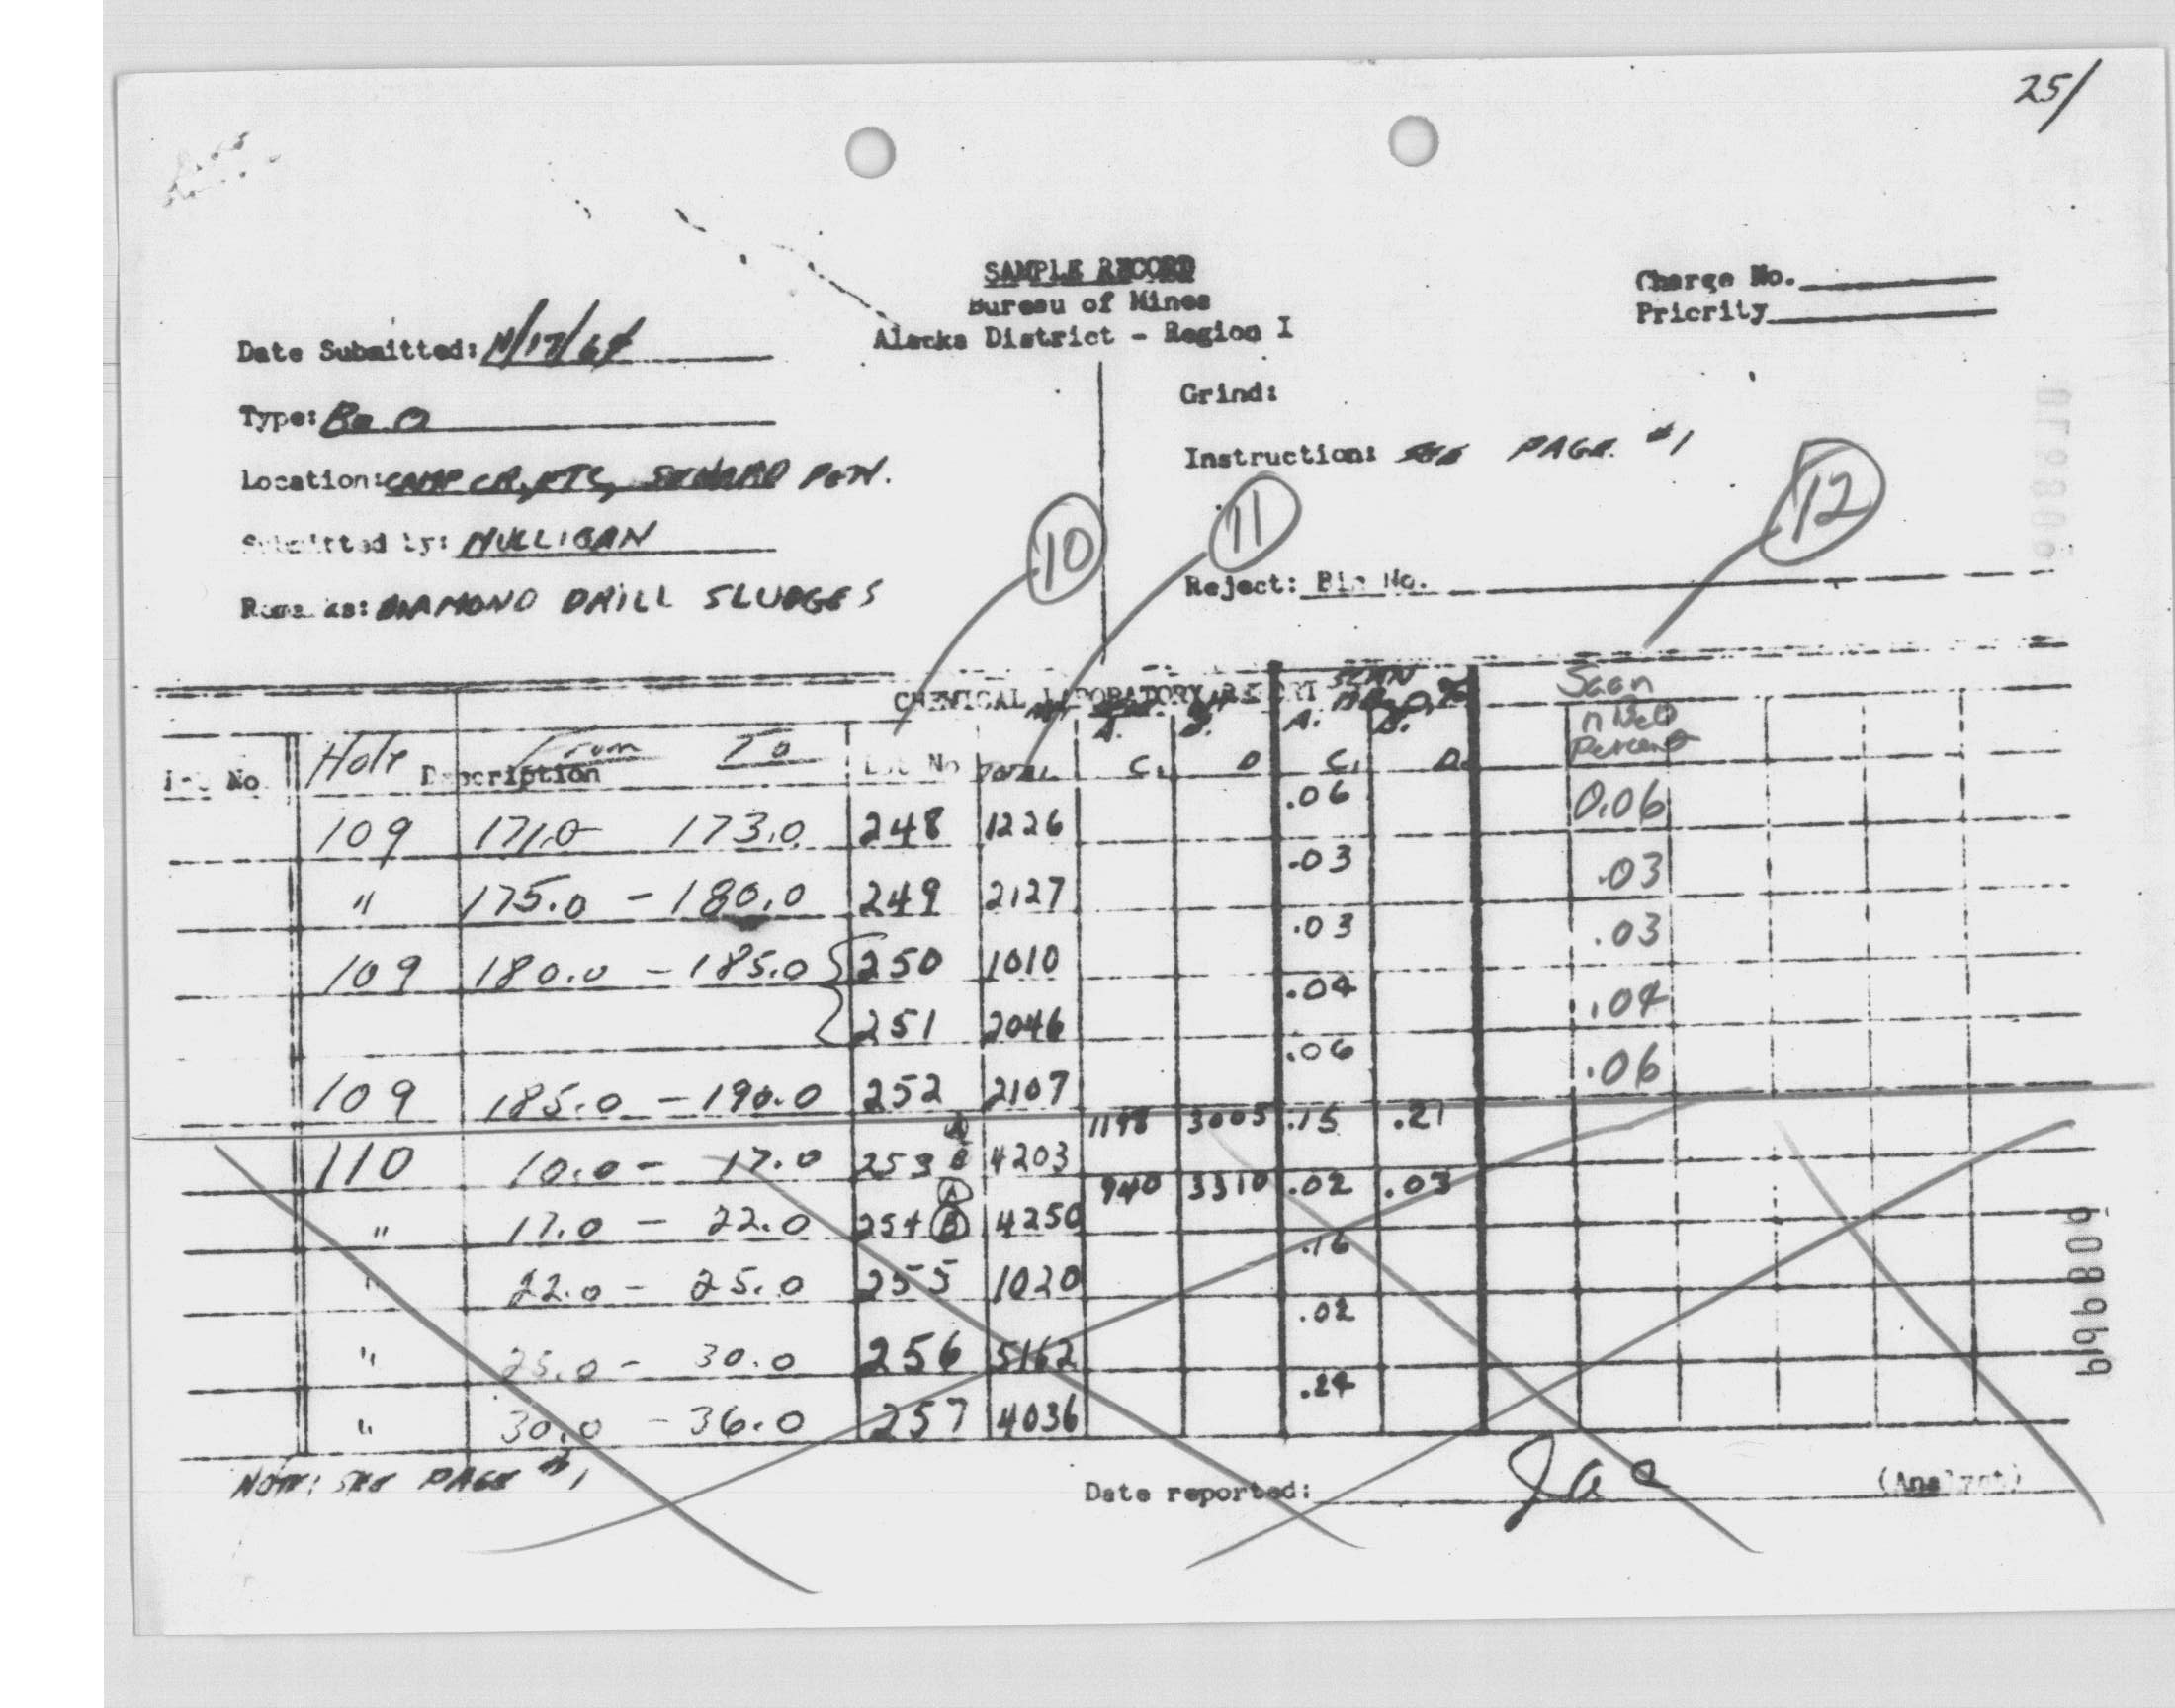 25/
SAMPLE RECORD
Bureau of Mines
Alaska District - Region I
Charge No.
Priority
Date Submitted: 11/17/64
Type: Be O
Location: CAMP CR, ETC, SEWARD PEN.
Submitted by: MULLIGAN
Remarks: DIAMOND DRILL SLUDGES
Grind:
Instruction: SEE PAGE #1
Reject: Bin No.
10 11 12
CHEMICAL LABORATORY REPORT
Scan
n BeO
Percent
A. B. A. B.
Lot No Hole Description From To Lot No TOTAL C. D C. D.
109 171.0 173.0 248 1226 .06 0.06
" 175.0 - 180.0 249 2127 .03 .03
109 180.0 - 185.0 250 1010 .03 .03
251 2046 .04 .04
109 185.0 - 190.0 252 2107 .06 .06
110 10.0 - 17.0 253 A B 4203 1198 3005 .15 .21
" 17.0 - 22.0 254 A B 4250 940 3310 .02 .03
" 22.0 - 25.0 255 1020 .16
" 25.0 - 30.0 256 5162 .02
" 30.0 - 36.0 257 4036 .24
NOTE: SEE PAGE #1
Date reported: (Analyst)